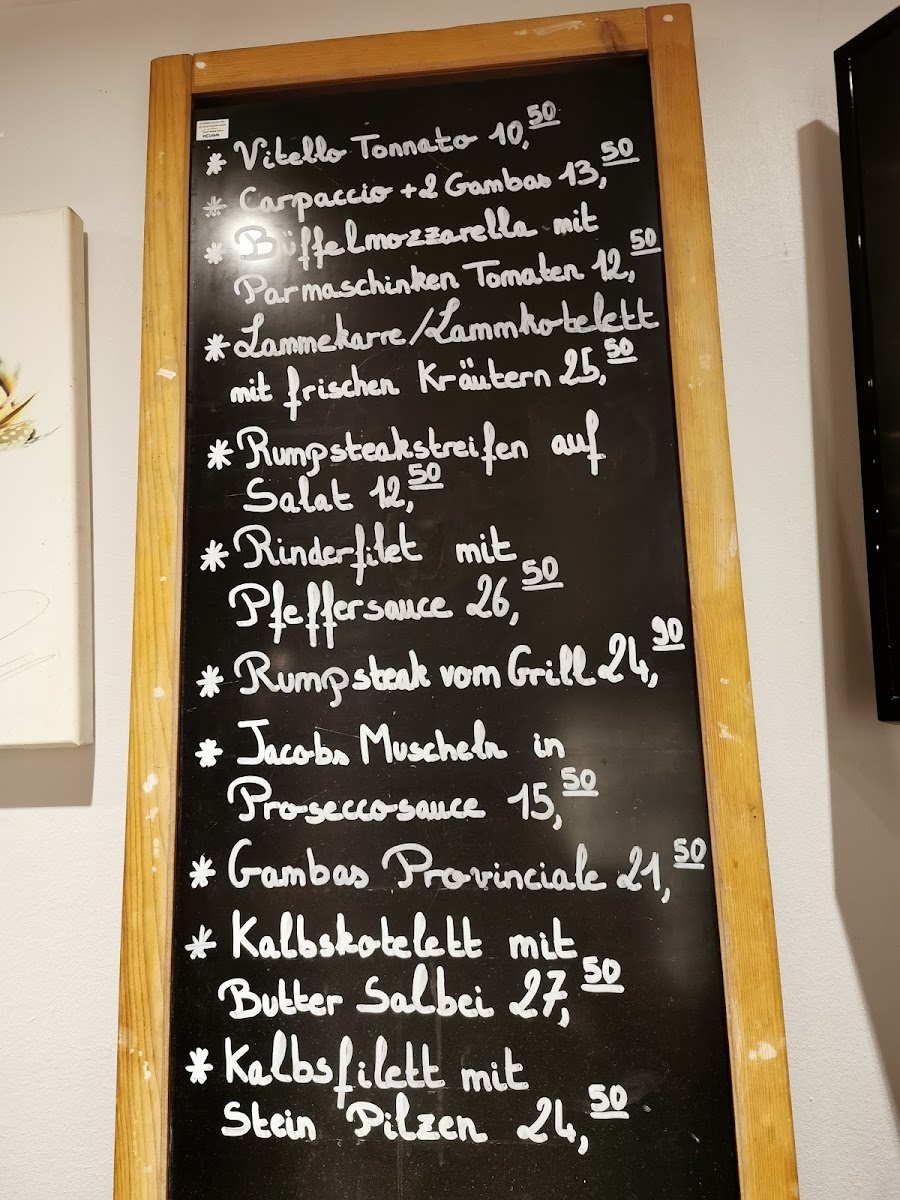 * Vitello Tonnato 10,50
* Carpaccio + 2 Gambas 13,50
* Büffelmozzarella mit
Parmaschinken Tomaten 12,50
* Lammekarre/Lammkotelett
mit frischen Kräutern 25,50
* Rumpsteakstreifen auf
Salat 12,50
* Rinderfilet mit
Pfeffersauce 26,50
* Rumpsteak vom Grill 24,90
* Jacobs Muscheln in
Proseccosauce 15,50
* Gambas Provinciale 21,50
* Kalbskotelett mit
Butter Salbei 27,50
* Kalbsfilett mit
Stein Pilzen 24,50